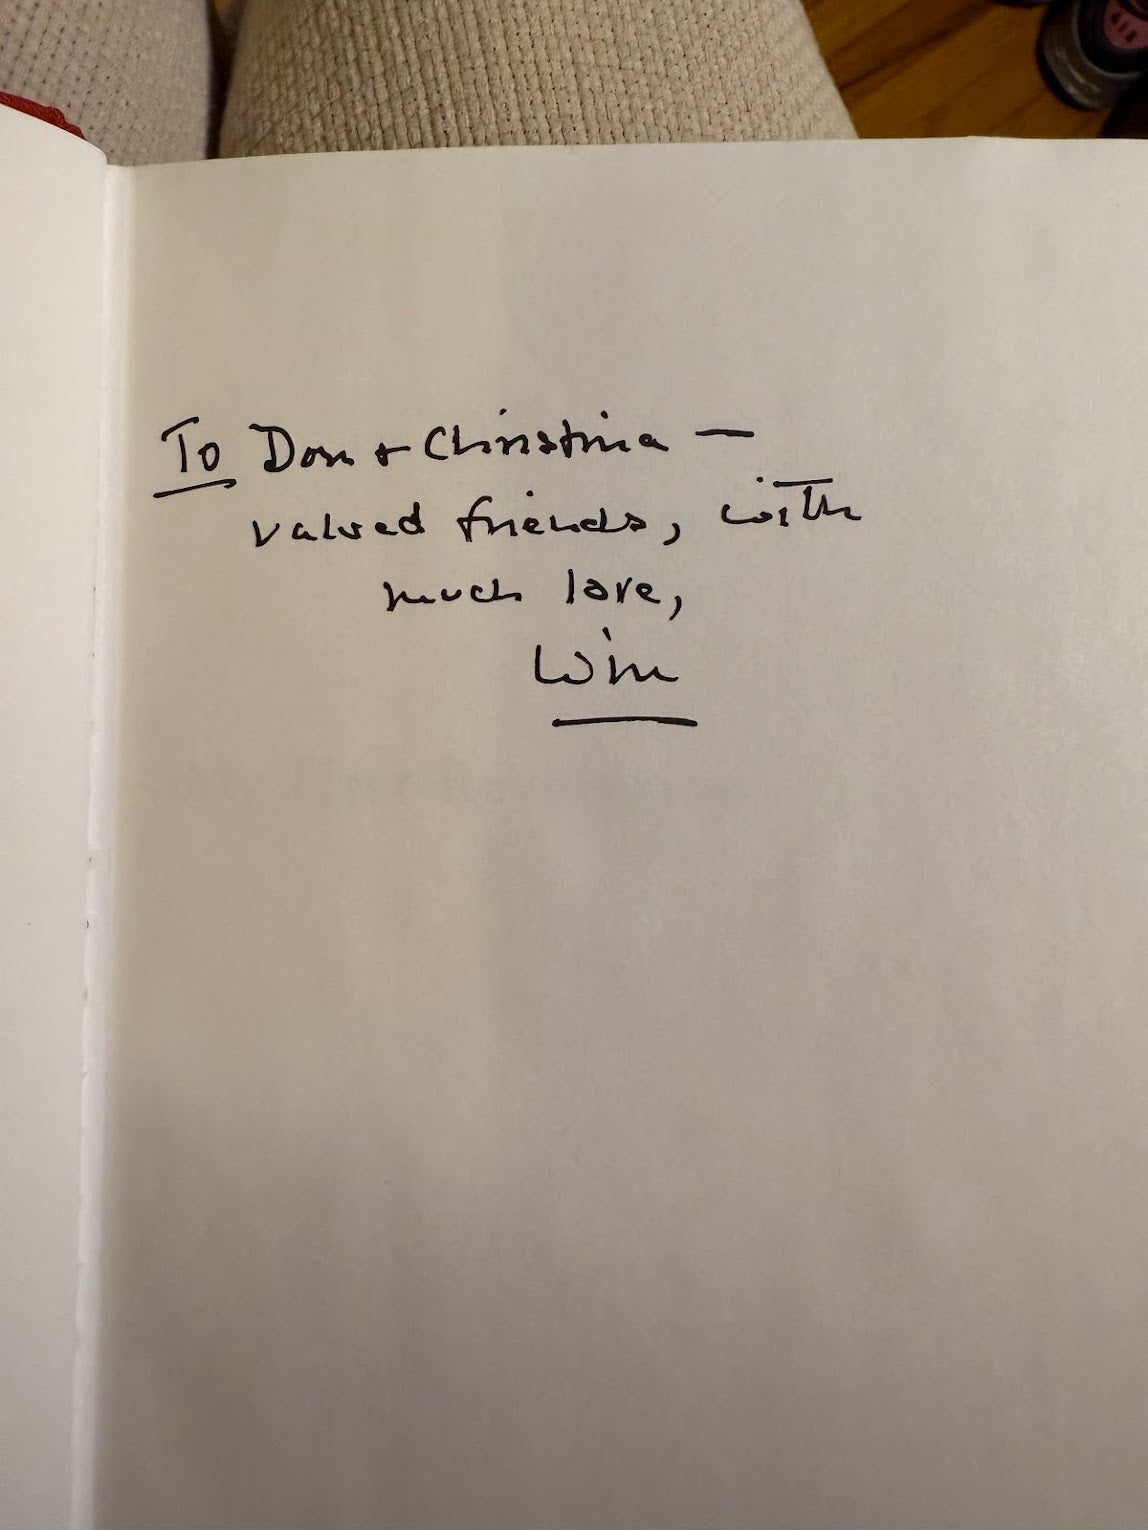 To Don + Christina —
valued friends, with
much love,
Win